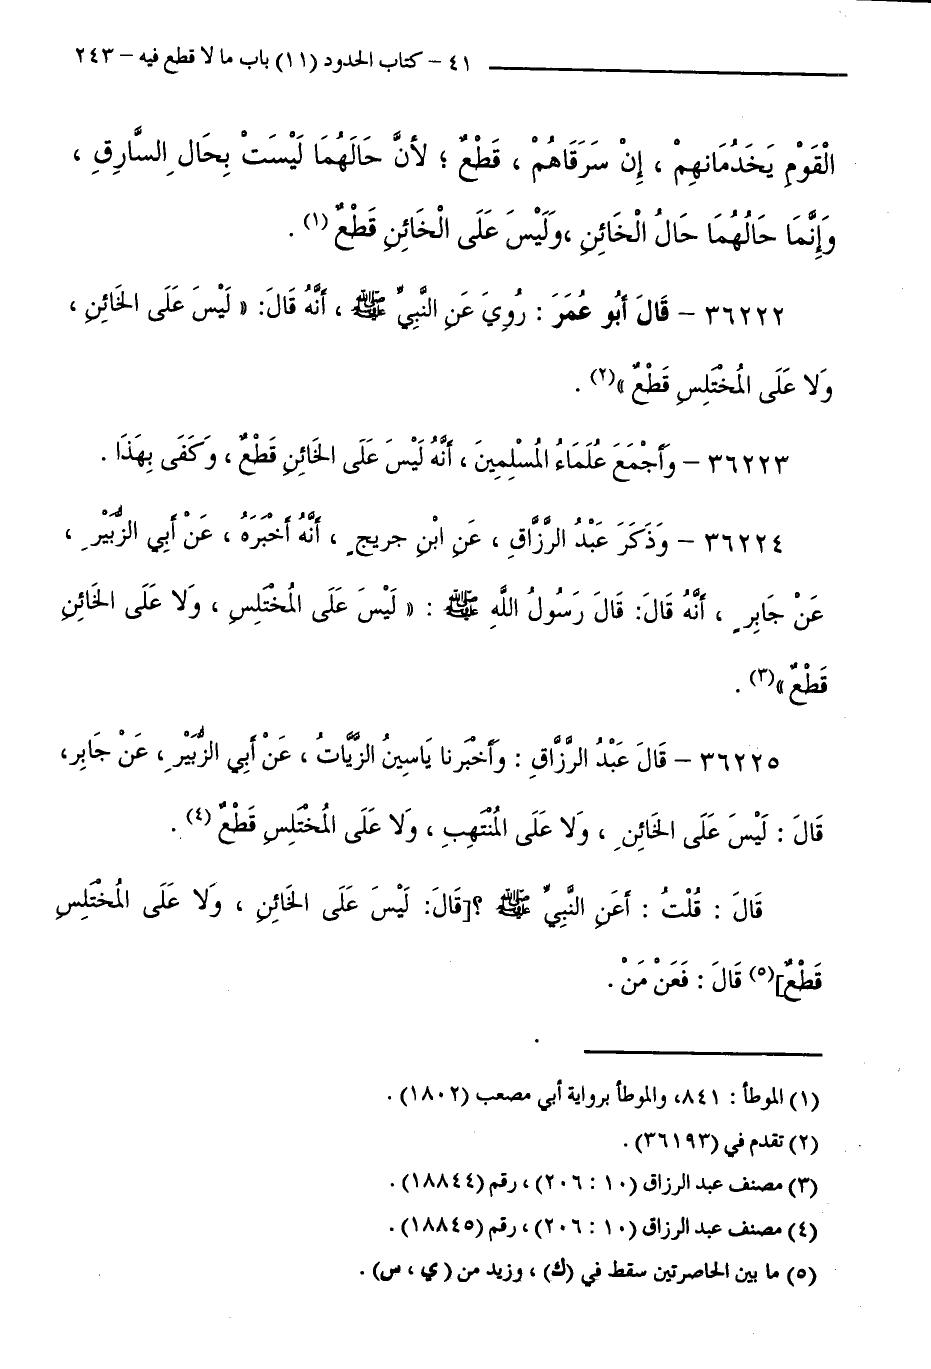 ٤١ – كتاب الحدود (١١) باب ما لا قطع فيه – ٢٤٣
الْقَوْمِ يَخْدُمَانِهِمْ ، إِنْ سَرَقَاهُمْ ، قَطْعٌ ؛ لأنَّ حَالَهُمَا لَيْسَتْ بِحَالِ السَّارِقِ ،
وَإِنَّمَا حَالُهُمَا حَالُ الْخَائِنِ ،وَلَيْسَ عَلَى الْخَائِنِ قَطْعٌ (١) .
٣٦٢٢٢ – قَالَ أَبُو عُمَرَ : رُوِيَ عَنِ النَّبِيِّ ﷺ ، أَنَّهُ قَالَ: « لَيْسَ عَلَى الْخَائِنِ ،
وَلا عَلَى الْمُخْتَلِسِ قَطْعٌ »(٢) .
٣٦٢٢٣ – وَأَجْمَعَ عُلَمَاءُ الْمُسْلِمِينَ ، أَنَّهُ لَيْسَ عَلَى الْخَائِنِ قَطْعٌ ، وَكَفَى بِهَذَا .
٣٦٢٢٤ – وَذَكَرَ عَبْدُ الرَّزَّاقِ ، عَنِ ابْنِ جريجٍ ، أَنَّهُ أَخْبَرَهُ ، عَنْ أَبِي الزُّبَيْرِ ،
عَنْ جَابِرٍ ، أَنَّهُ قَالَ: قَالَ رَسُولُ اللَّهِ ﷺ : « لَيْسَ عَلَى الْمُخْتَلِسِ ، وَلا عَلَى الْخَائِنِ
قَطْعٌ »(٣) .
٣٦٢٢٥ – قَالَ عَبْدُ الرَّزَّاقِ : وَأَخْبَرنا يَاسِينُ الزَّيَّاتُ ، عَنْ أَبِي الزُّبَيْرِ ، عَنْ جَابِرٍ،
قَالَ : لَيْسَ عَلَى الْخَائِنِ ، وَلا عَلَى الْمُنْتَهِبِ ، وَلا عَلَى الْمُخْتَلِسِ قَطْعٌ (٤) .
قَالَ : قُلْتُ : أَعَنِ النَّبِيِّ ﷺ ؟[قَالَ: لَيْسَ عَلَى الْخَائِنِ ، وَلا عَلَى الْمُخْتَلِسِ
قَطْعٌ](٥) قَالَ : فَعَنْ مَنْ .
(١) الموطأ : ٨٤١، والموطأ برواية أبي مصعب (١٨٠٢) .
(٢) تقدم في (٣٦١٩٣) .
(٣) مصنف عبد الرزاق (١٠ : ٢٠٦) ، رقم (١٨٨٤٤) .
(٤) مصنف عبد الرزاق (١٠ : ٢٠٦) ، رقم (١٨٨٤٥) .
(٥) ما بين الحاصرتين سقط في (ك) ، وزيد من ( ي ، س) .